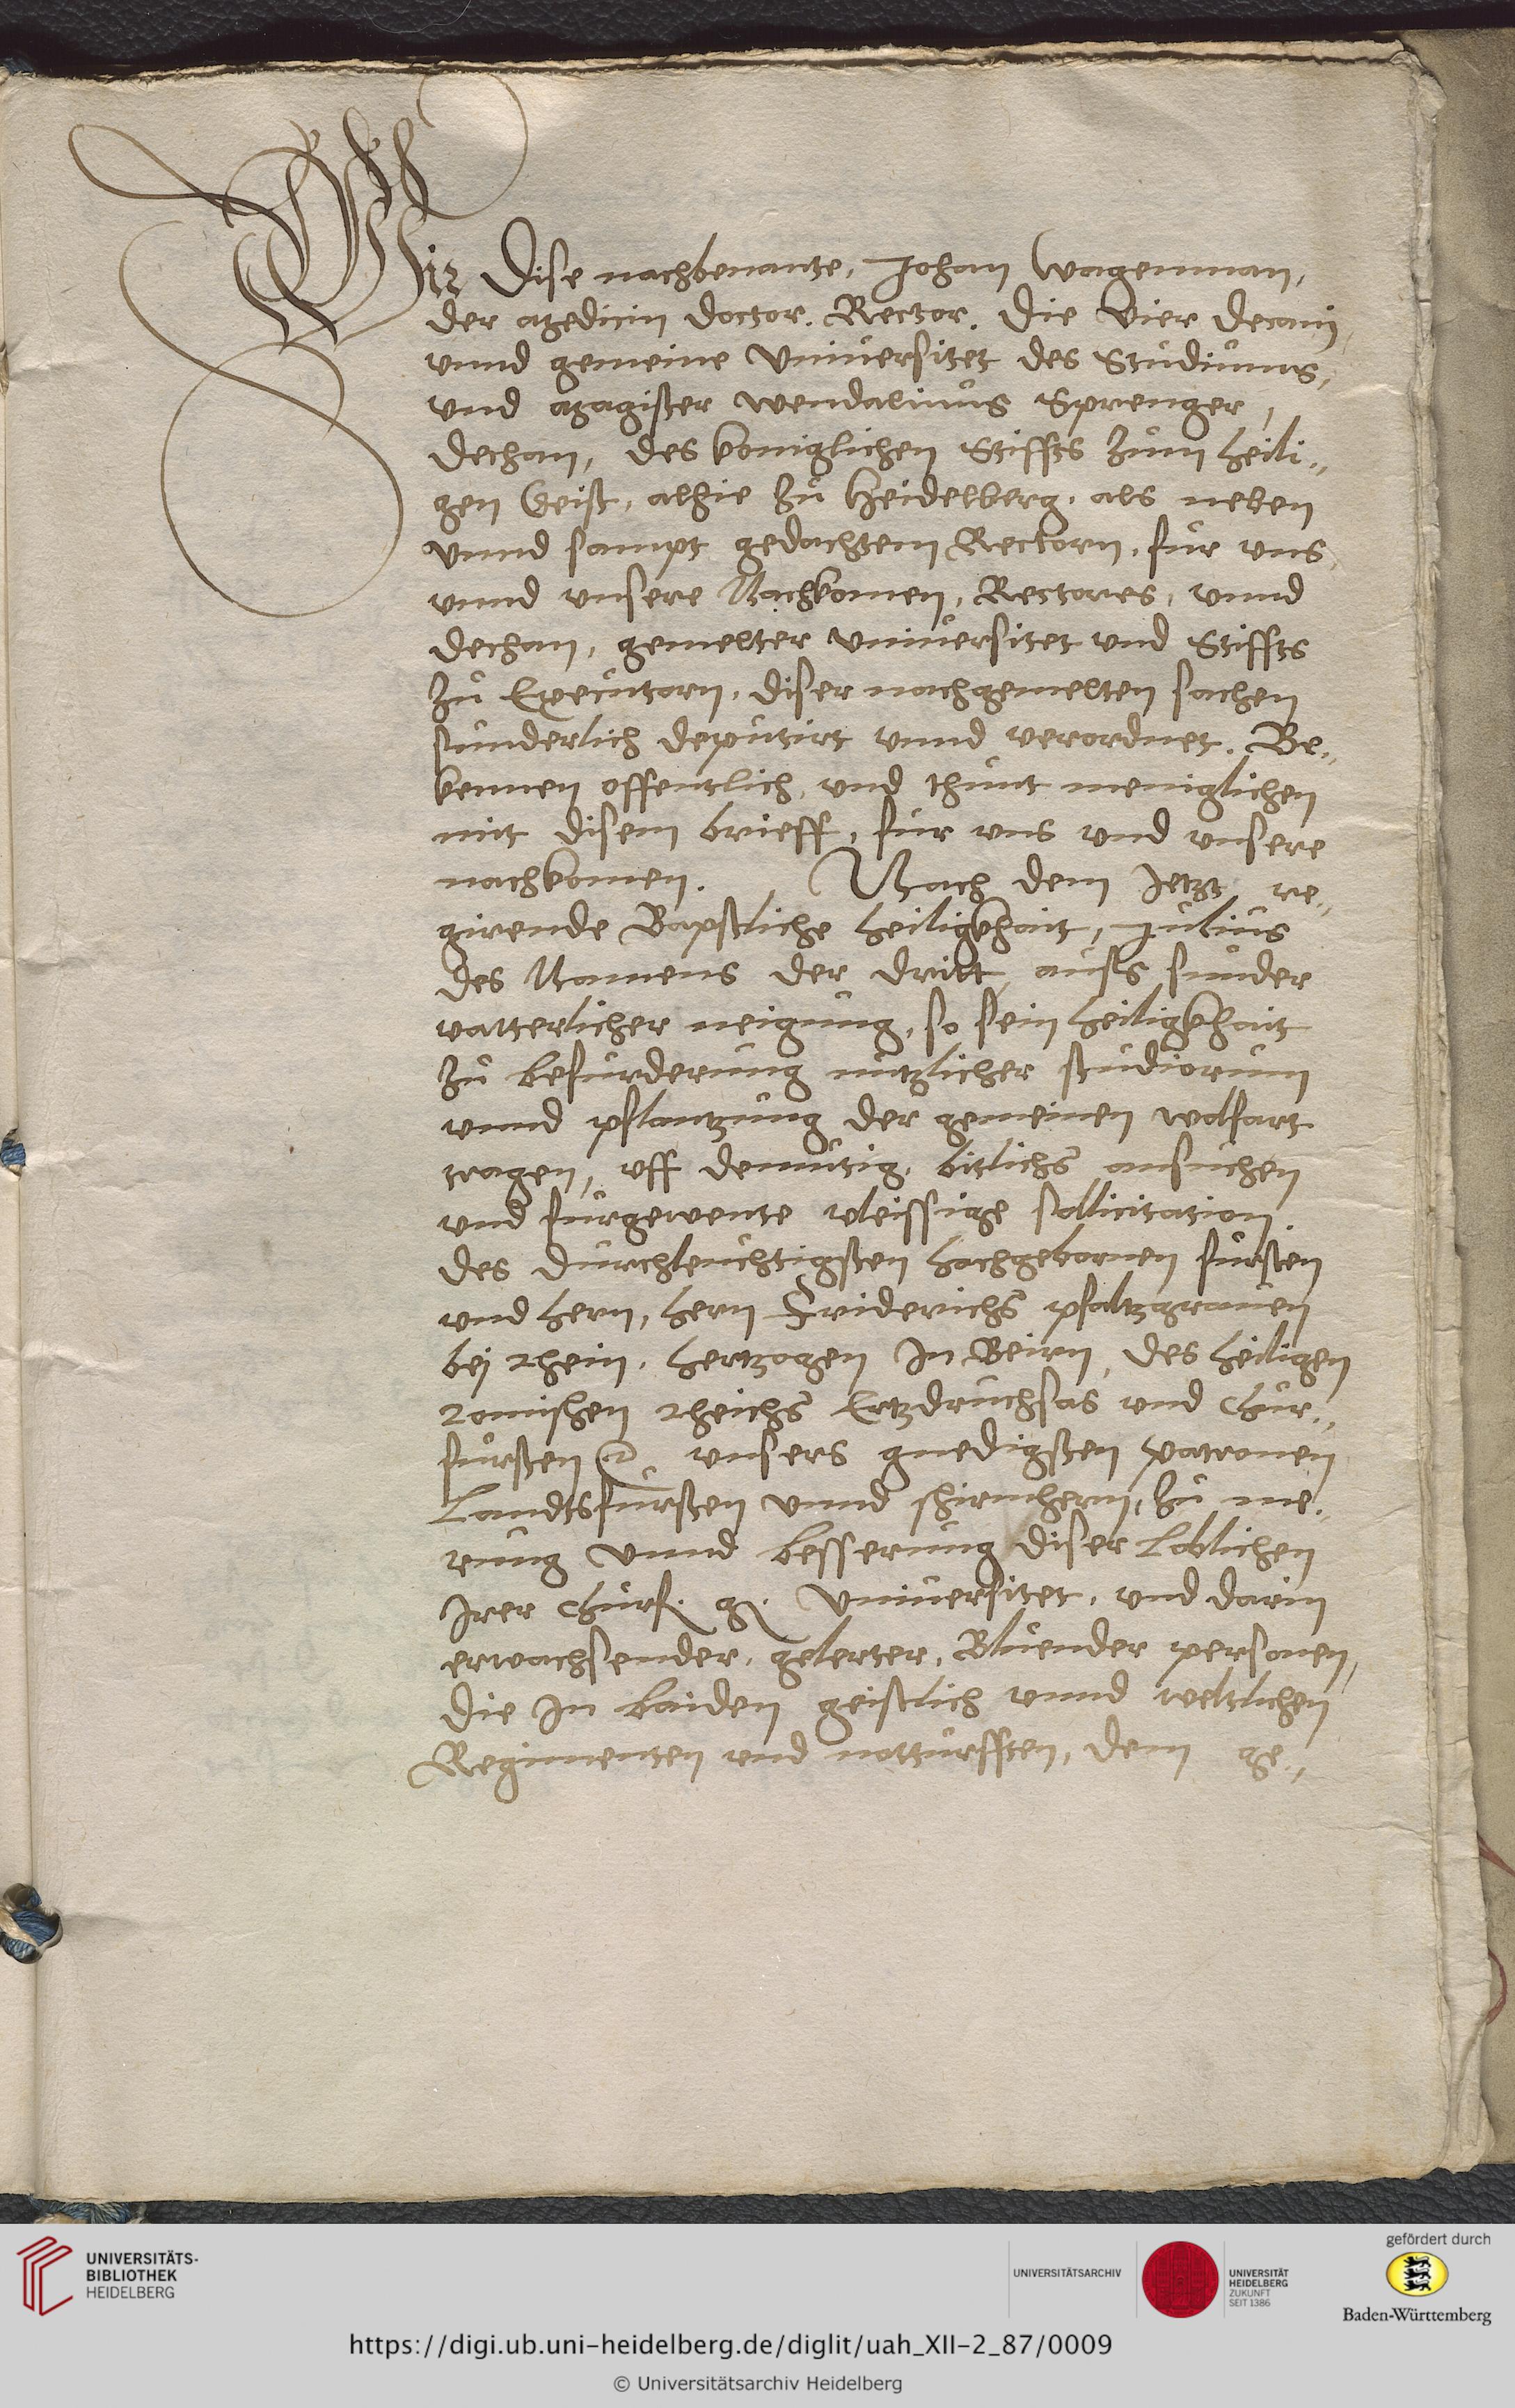 Wir Dise nachbenante, Johan Wagenman,
der Medicin doctor. Rector. Die Vier Decani
vnnd gemeine Vniuersitet des Studiums,
vnd Magister Wendalinus Sprenger,
dechan, des koniglichen Stiffts zum heili„
gen Geist, alhie zu Heidelberg, als neben
vnnd sampt gedachtem Rectorn, fur vns
vnnd vnsere Nachkomen, Rectores, vnnd
dechan, gemelter Vniuersitet vnd Stiffts
zu Executorn, diser nachgemelten sachen
sunderlich deputirt vnnd verordnet. Be„
kennen offentlich, vnd thunt meniglichen
mit disem brieff, fur vns vnd vnsere
nachkomen. Nach dem Jetzt re„
girende Bapstliche heiligkhait, Julius
des Namens der dritt, auss sunder
vatterlicher neigung, so sein heiligkhait
zu befurderung nutzlicher studiorum
vnnd pflantzung der gemeinen wolfart
tragen, vff demutig, bitlichs ansuchen
vnd furgewente vleissige sollicitation.
des durchleuchtigsten hochgebornen fursten
vnd hern, hern Friderichs pfaltzgrauen
bej Rhein, hertzogen In Beirn, des heiligen
Romischen Rheichs Ertzdruchsas vnd Chur„
fursten ꝛc. vnsers gnedigsten patronen
Landtsfursten vnnd schirmhern, zu me„
rung vnnd besserung diser Loblichen
Irer Churf. g. Vniuersitet, vnd darin
erwachsender, gelerter, Bluender personen,
die In baiden geistlich vnnd weltlichen
Regimenten vnd notturfften, dem ge„
UNIVERSITÄTS-
BIBLIOTHEK
HEIDELBERG
UNIVERSITÄTSARCHIV
UNIVERSITÄT
HEIDELBERG
ZUKUNFT
SEIT 1386
gefördert durch
Baden-Württemberg
https://digi.ub.uni-heidelberg.de/diglit/uah_XII-2_87/0009
© Universitätsarchiv Heidelberg